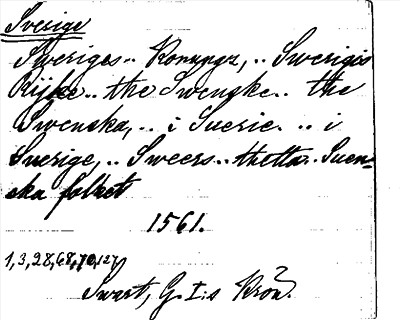 Sverige
Sweriges .. Konungz, .. Swerigis
Rijke .. the Swenske .. the
Swenska, .. i Suerie. .. i
Suerige, .. Sweers .. thetta .. Suen-
ska folket
1561.
1, 3, 28, 68, 70, 127
Swart, G. I:s Krön.